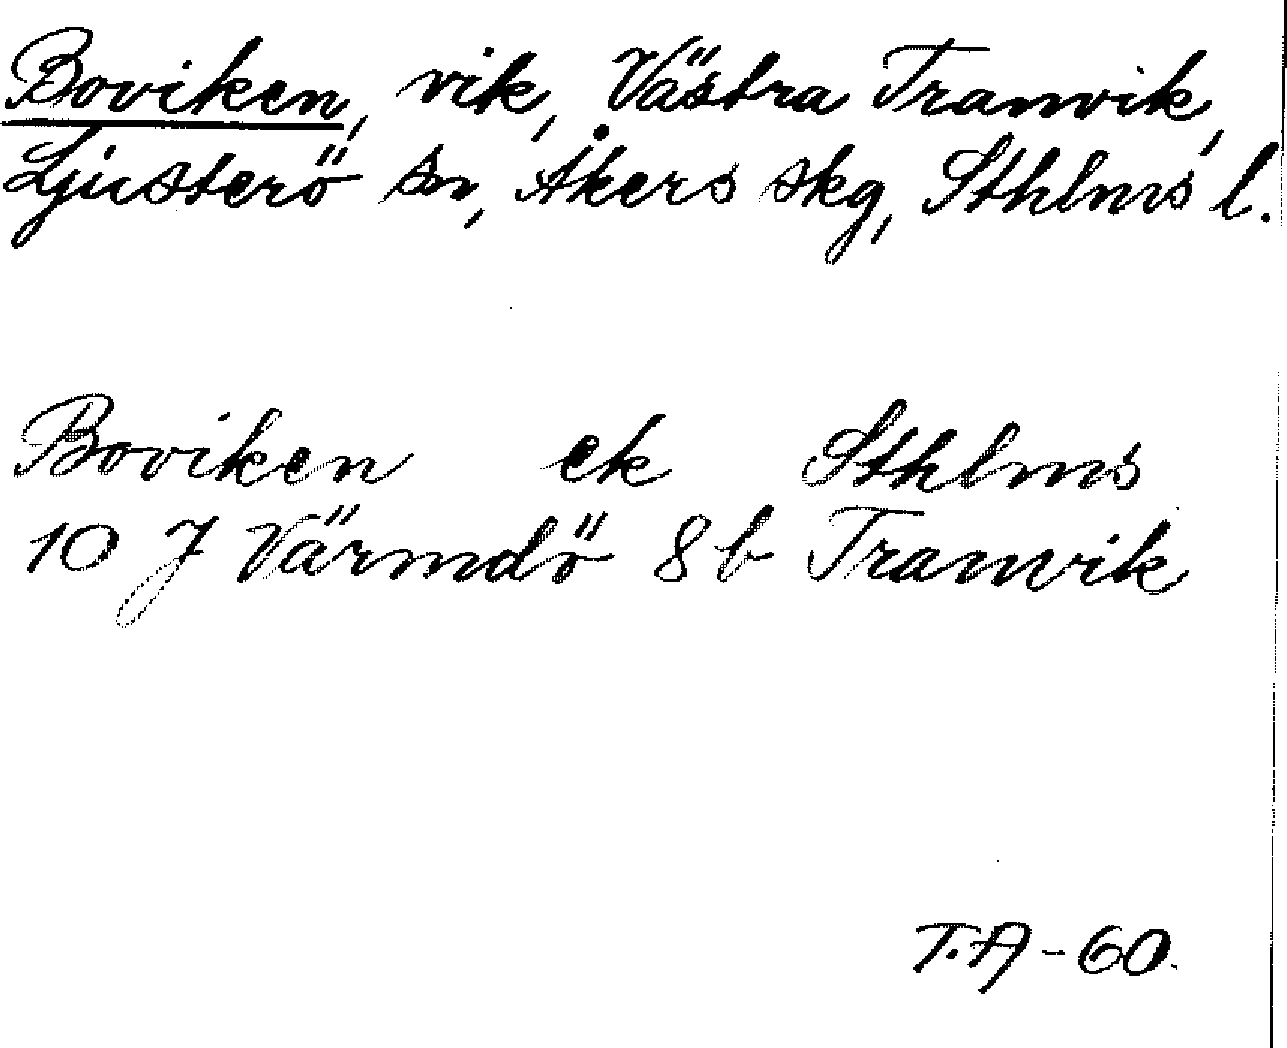 Boviken, vik, Västra Tranvik,
Ljusterö sn, Åkers skg, Sthlms l.
Boviken ek Sthlms
10 J Värmdö 8 b Tranvik
T.A-60.